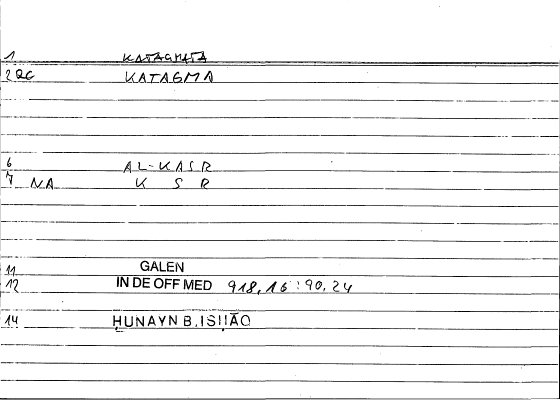 1 KATAGMATA
2 KATAGMA
6 AL-KASR
7 NA K S R
11 GALEN
12 IN DE OFF MED 918,16 : 90,24
14 ḤUNAYN B.ISḤĀQ